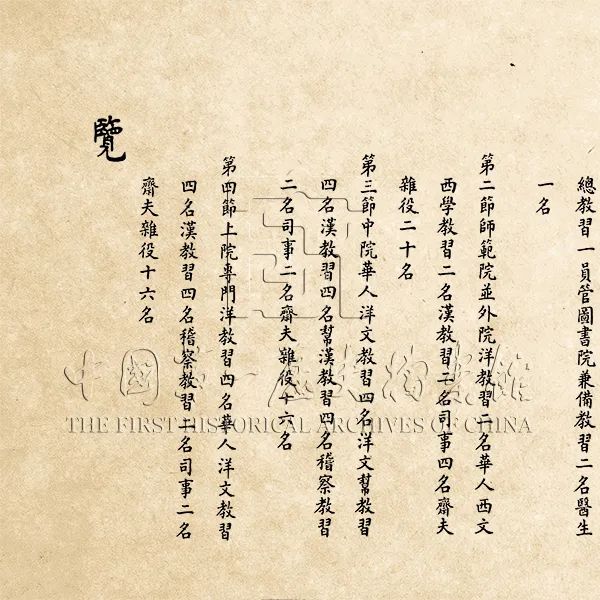 總教習一員管圖書院兼備教習二名醫生
一名
第二節師範院並外院洋教習二名華人西文
西學教習二名漢教習二名司事四名齋夫
雜役二十名
第三節中院華人洋文教習四名洋文幫教習
四名漢教習四名幫漢教習四名稽察教習
二名司事二名齋夫雜役十六名
第四節上院專門洋教習四名華人洋文教習
四名漢教習四名稽察教習二名司事二名
齋夫雜役十六名
覽
中國第一歷史檔案館
THE FIRST HISTORICAL ARCHIVES OF CHINA